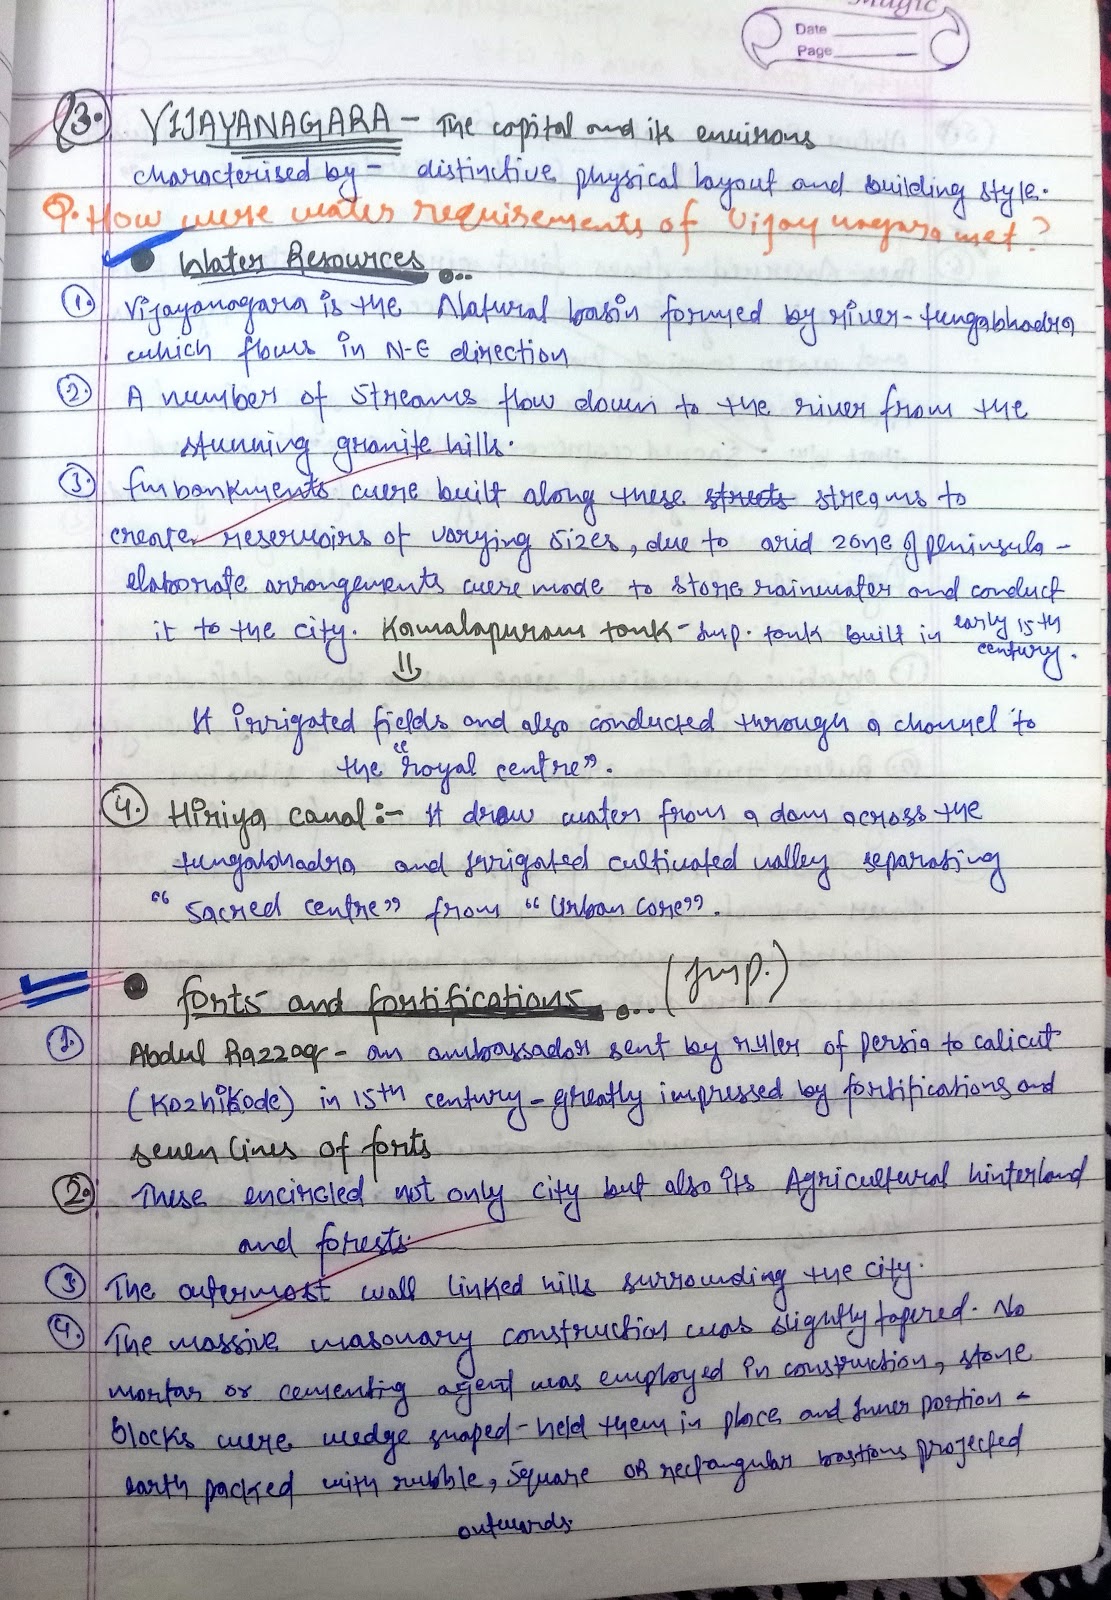 Magic
Date
Page
3. VIJAYANAGARA - The capital and its environs
characterised by - distinctive physical layout and building style.
Q. How were water requirements of Vijaynagara met?
• Water Resources ...
1. Vijayanagara is the Natural basin formed by river - tungabhadra
which flows in N-E direction
2. A number of streams flow down to the river from the
stunning granite hills.
3. Embankments were built along these streets streams to
create reservoirs of varying sizes, due to arid zone of peninsula -
elaborate arrangements were made to store rainwater and conduct
it to the city. Kamalapuram tank - Imp. tank built in early 15th century.
⇓
It irrigated fields and also conducted through a channel to
the "royal centre".
4. Hiriya canal :- It drew water from a dam across the
tungabhadra and irrigated cultivated valley separating
"Sacred centre" from "Urban Core".
• forts and fortifications ... (Imp.)
1. Abdul Razzaq - an ambassador sent by ruler of persia to calicut
(Kozhikode) in 15th century - greatly impressed by fortifications and
seven lines of forts
2. These encircled not only city but also its Agricultural hinterland
and forests.
3 The outermost wall linked hills surrounding the city.
4. The massive masonary construction was slightly tapered. No
mortar or cementing agent was employed in construction, stone
blocks were wedge shaped - held them in place and Inner portion -
earth packed with rubble, Square OR rectangular bastions projected
outwards.